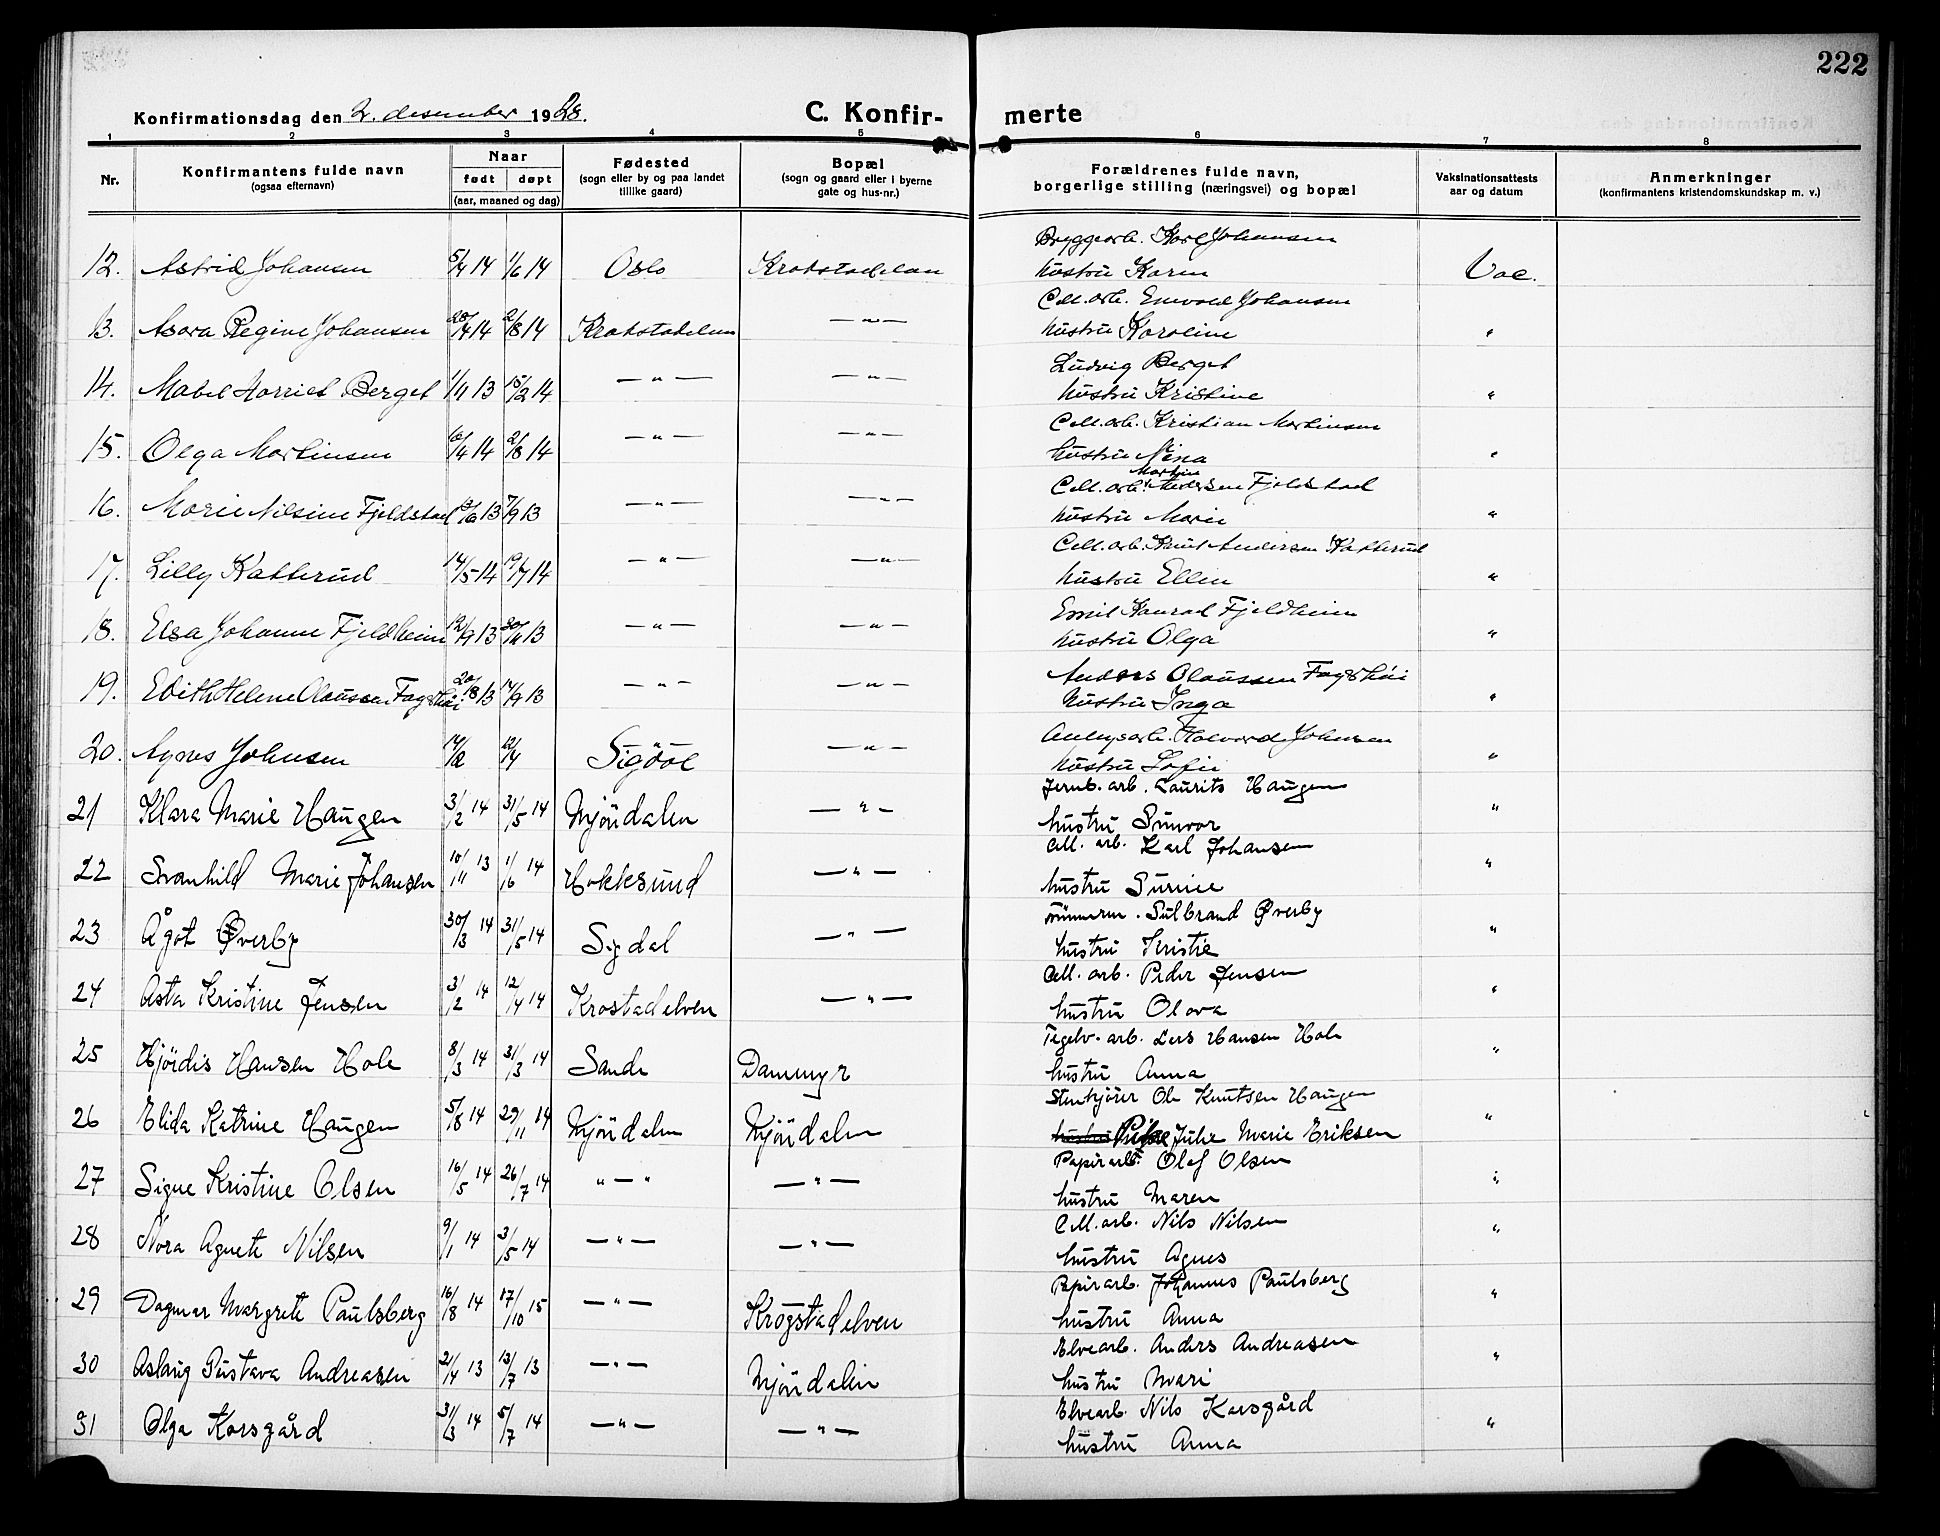 222
Konfirmationsdag den 2. desember 1928. C. Konfir- merte
1 2 3 4 5 6 7 8
Nr. Konfirmantens fulde navn (ogsaa efternavn) Naar født døpt (aar, maaned og dag) Fødested (sogn eller by og paa landet tillike gaard) Bopæl (sogn og gaard eller i byerne gate og hus-nr.) Forældrenes fulde navn, borgerlige stilling (næringsvei) og bopæl Vaksinationsattests aar og datum Anmerkninger (konfirmantens kristendomskundskap m. v.)
Bryggearb. Karl Johansen
12. Astrid Johansen 5/4 14 1/6 14 Oslo Krokstadelven hustru Karen Vac.
Cell. arb. Johansen
13. Regine Johansen 28/4 14 2/8 14 Krokstadelven — " — hustru Karoline "
Ludvig Berget
14. Mabel Harriet Berget 1/11 13 15/2 14 — " — — " — hustru Kristine "
Cell. arb. Kristian Martinsen
15. Olga Martinsen 10/4 14 2/8 14 — " — — " — hustru Nina "
Cell. arb. Martin Andersen Fjeldstad
16. Marie Nilsine Fjeldstad 13/6 13 7/9 13 — " — — " — hustru Marie "
Cell. arb. Knut Andersen Katterud
17. Lilly Katterud 14/5 14 19/7 14 — " — — " — hustru Ellen "
Emil Konrad Fjeldheim
18. Elsa Johanne Fjeldheim 12/9 13 30/11 13 — " — — " — hustru Olga "
Anders Olaussen Fagerhøi
19. Edith Helene Olaussen Fagerhøi 20/8 13 14/9 13 — " — — " — hustru Inga "
Halvord Johnsen
20. Agnes Johnsen 14/2 12/4 Sigdal — " — hustru Sofie "
Jernb. arb. Laurits Haugen
21 Klara Marie Haugen 3/2 14 31/5 14 Mjöndalen — " — hustru Gunvor "
Cell. arb. Karl Johansen
22 Svanhild Marie Johansen 10/11 13 1/6 14 Hokksund — " — hustru Gurine "
Tömmerm. Gulbrand Øverby
23 Ågot Øverby 30/3 14 31/5 14 Sigdal — " — hustru Kristie "
Cell. arb. Peder Jensen
24 Asta Kristine Jensen 3/2 14 12/4 14 Krostadelven — " — hustru Olova "
Tegelv. arb. Lars Hansen Hole
25 Hjördis Hansen Hole 8/3 14 31/3 14 Sande Dammyr hustru Anna "
Stenkjörer Ole Knutsen Haugen
26 Elida Katrine Haugen 5/8 14 29/11 14 Mjöndalen Mjöndalen hustru Pike Julie Marie Eriksen "
Papirarb. Olaf Olsen
27 Signe Kristine Olsen 16/5 14 26/7 14 " — " — " — hustru Maren "
Cell. arb. Nils Nilsen
28 Nora Agnete Nilsen 9/1 14 3/5 14 — " — — " — hustru Agnes "
Papirarb. Johannes Paulsberg
29 Dagmar Margrete Paulsberg 16/8 14 17/10 15 — " — Krogstadelven hustru Anna "
Elvearb. Anders Andreasen
30 Aslaug Gustava Andreasen 21/4 13 13/7 13 — " — Mjöndalen hustru Mari "
Elvearb. Nils Korsgård
31 Olga Korsgård 31/3 14 5/7 14 — " — — " — hustru Anna "